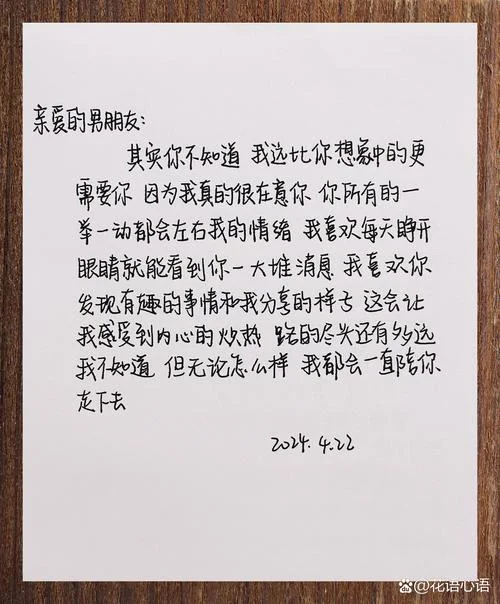 亲爱的男朋友:
其实你不知道 我远比你想象中的更
需要你 因为我真的很在意你 你所有的一
举一动都会左右我的情绪 我喜欢每天睁开
眼睛就能看到你一大堆消息 我喜欢你
发现有趣的事情和我分享的样子 这会让
我感受到内心的炽热 路的尽头还有多远
我不知道 但无论怎么样 我都会一直陪你
走下去
2024.4.22
@花语心语